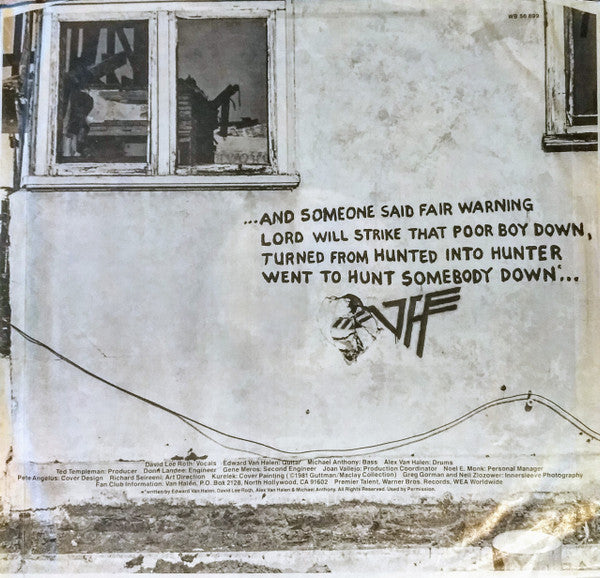 WB 56 899
...AND SOMEONE SAID FAIR WARNING
LORD WILL STRIKE THAT POOR BOY DOWN,
TURNED FROM HUNTED INTO HUNTER
WENT TO HUNT SOMEBODY DOWN*...
VH
David Lee Roth: Vocals Edward Van Halen: Guitar Michael Anthony: Bass Alex Van Halen: Drums
Ted Templeman: Producer Donn Landee: Engineer Gene Meros: Second Engineer Joan Vallejo: Production Coordinator Noel E. Monk: Personal Manager
Pete Angelus: Cover Design Richard Seireeni: Art Direction Kurelek: Cover Painting (©1981 Guttman/Maclay Collection) Greg Gorman and Neil Zlozower: Innersleeve Photography
Fan Club Information: Van Halen, P.O. Box 2128, North Hollywood, CA 91602 Premier Talent, Warner Bros. Records, WEA Worldwide
*written by Edward Van Halen, David Lee Roth, Alex Van Halen & Michael Anthony. All Rights Reserved. Used by Permission.